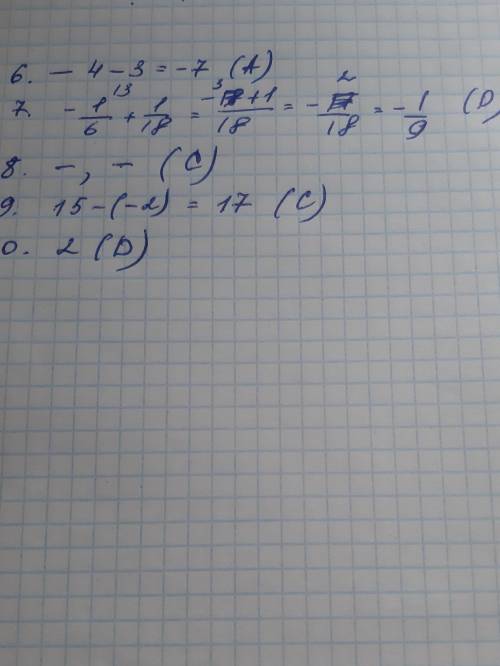 6. - 4 - 3 = -7 (A)
7. -1/6 13 + 1/18 = -3 + 1/18 = -2/18 = -1/9 (D)
8. -, - (C)
9. 15 - (-2) = 17 (C)
0. 2 (D)